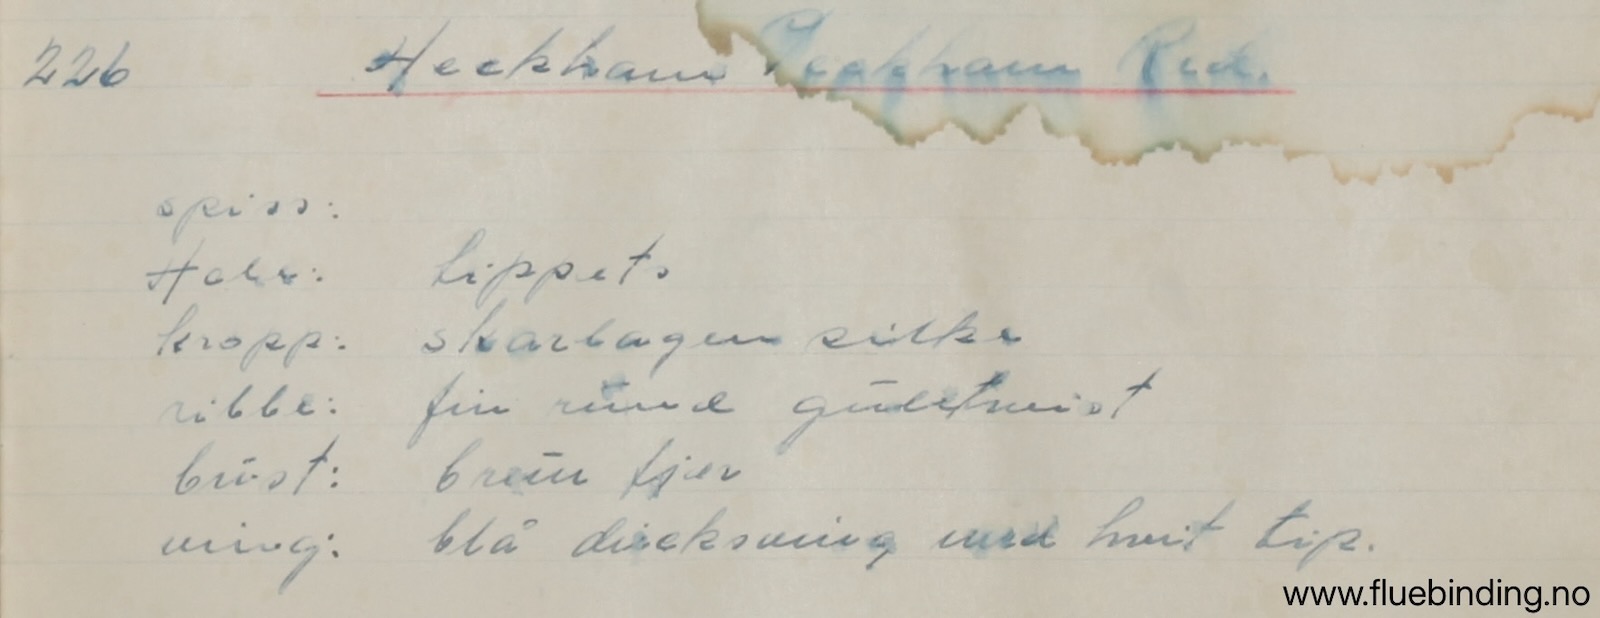 226 Heckham Peckham Red.
spiss:
Hale: tippets
kropp: skarlagen silke
ribbe: fin rund gulltwist
brüst: brun fjær
ving: blå duckswing med hvit tip.
www.fluebinding.no